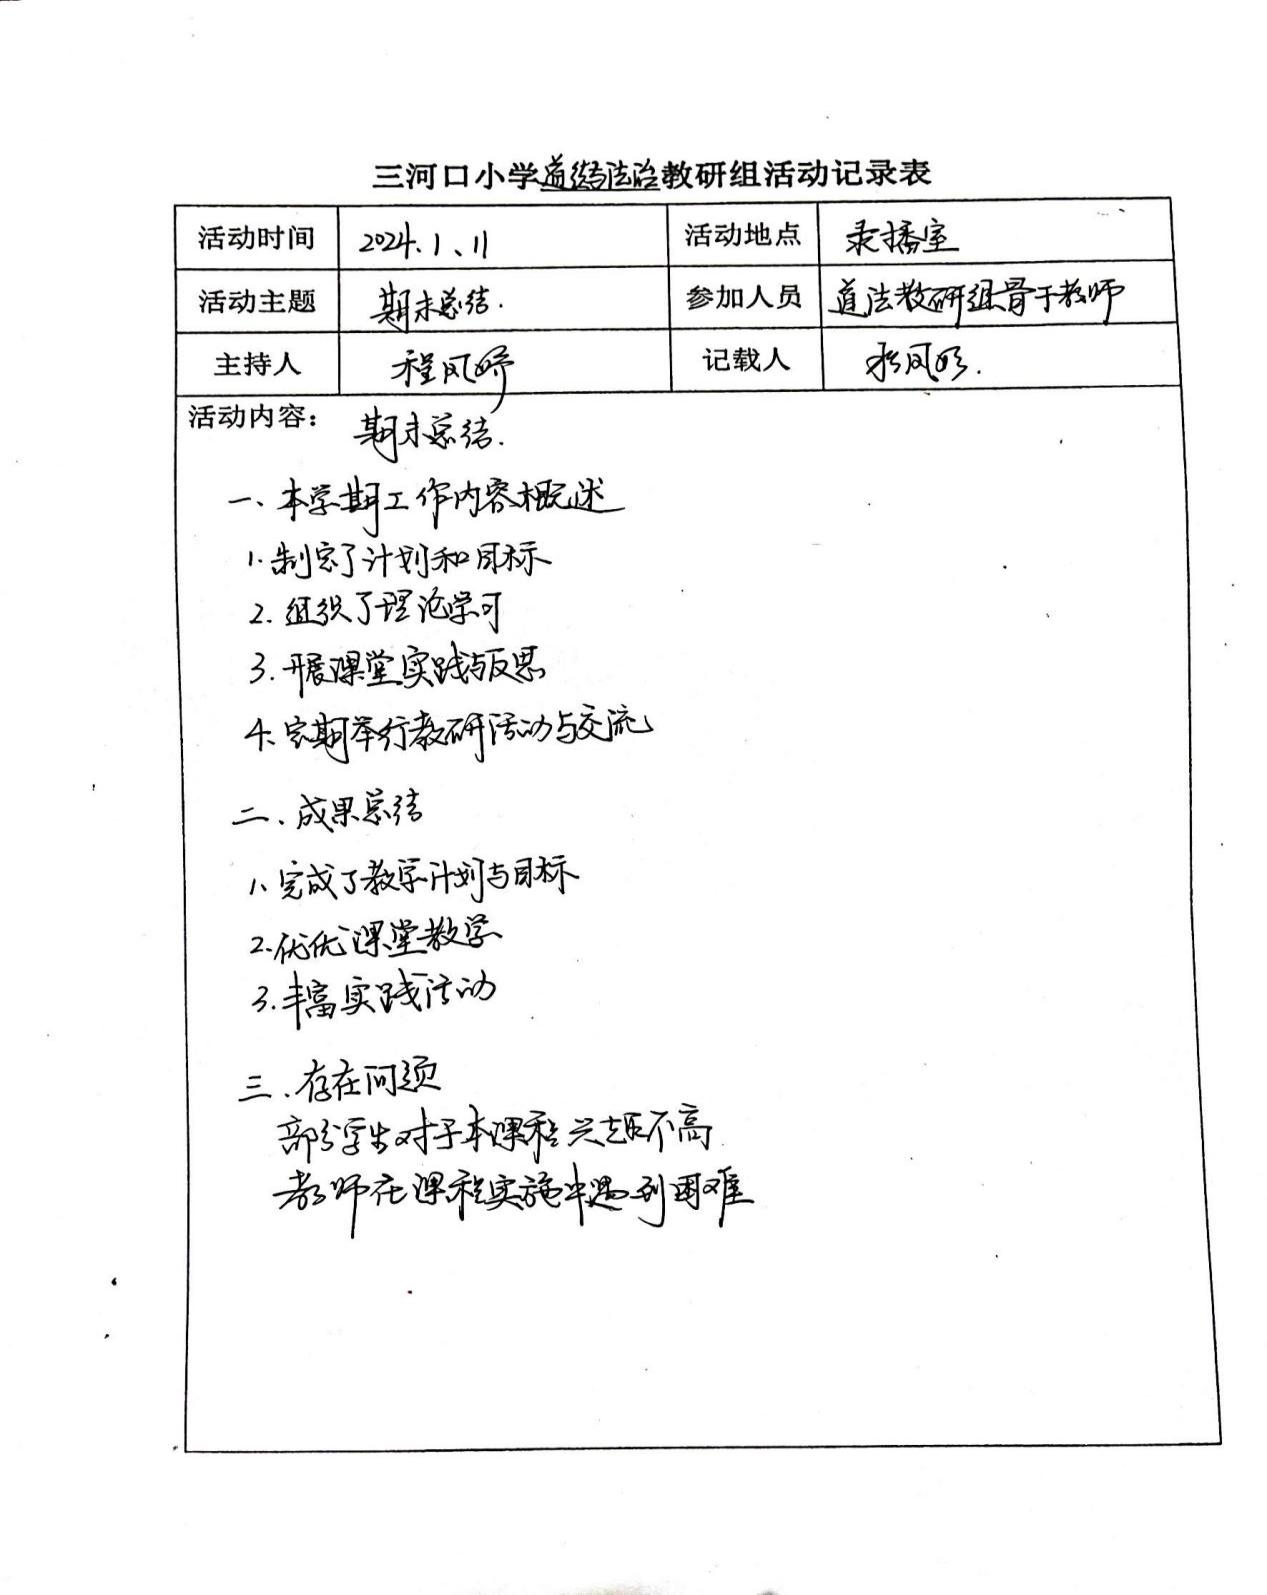 三河口小学道德与法治教研组活动记录表
活动时间 2024.1、11 活动地点 录播室
活动主题 期末总结. 参加人员 道法教研组骨干教师
主持人 程凤娇 记载人
活动内容： 期末总结.
一、本学期工作内容概述
1.制定了计划和目标
2.组织了理论学习
3.开展课堂实践与反思
4.定期举行教研活动与交流
二、成果总结
1、完成了教学计划与目标
2.优化课堂教学
3.丰富实践活动
三、存在问题
部分学生对于本课程兴趣不高
教师在课程实施中遇到困难